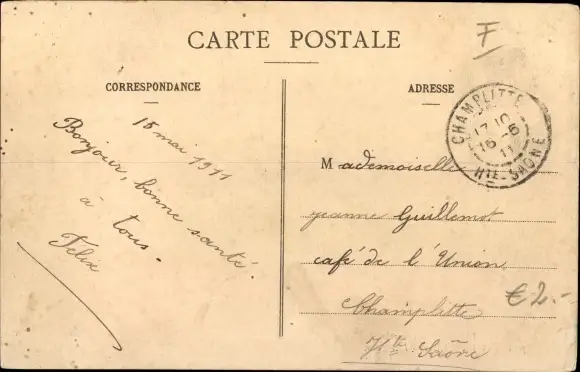 CARTE POSTALE
CORRESPONDANCE
ADRESSE
F
15 mai 1911
Bonjour, bonne santé
à tous.
Félix
CHAMPLITTE
17 10
16 - 5
11
HTE - SAÔNE
Mademoiselle
Jeanne Guillemot
café de l'Union
Champlitte
Hte Saône
€ 2.-